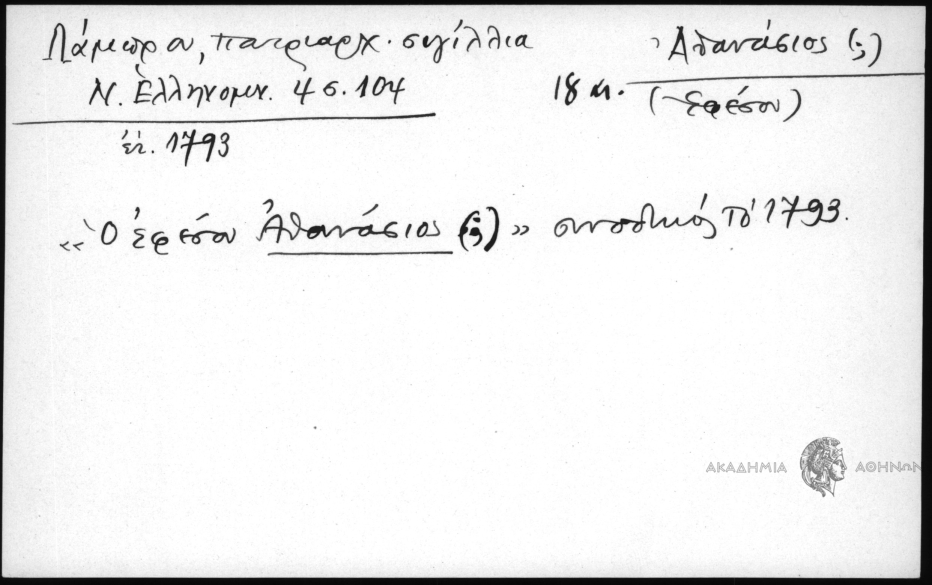 Λάμπρου, πατριαρχ. σιγίλλια
Ν. Ἑλληνομν. 4 σ. 104
ἔτ. 1793
Ἀθανάσιος (;)
18 αι. (Ἐφέσου)
«Ὁ ἐφέσου Ἀθανάσιος (;)» συνοδικός τό 1793.
ΑΚΑΔΗΜΙΑ ΑΘΗΝΩΝ